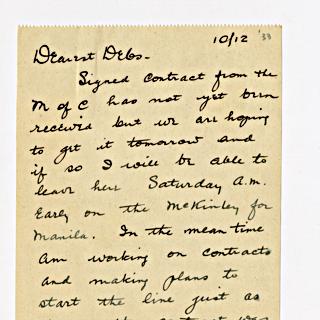 10/12 '33
Dearest Debs-
Signed contract from the
M of C has not yet been
receivid but we are hoping
to get it tomorrow and
if so I will be able to
leave here Saturday A.M.
Early on the McKinley for
Manila. In the mean time
am working on contracts
and making plans to
start the line just as
the contract was